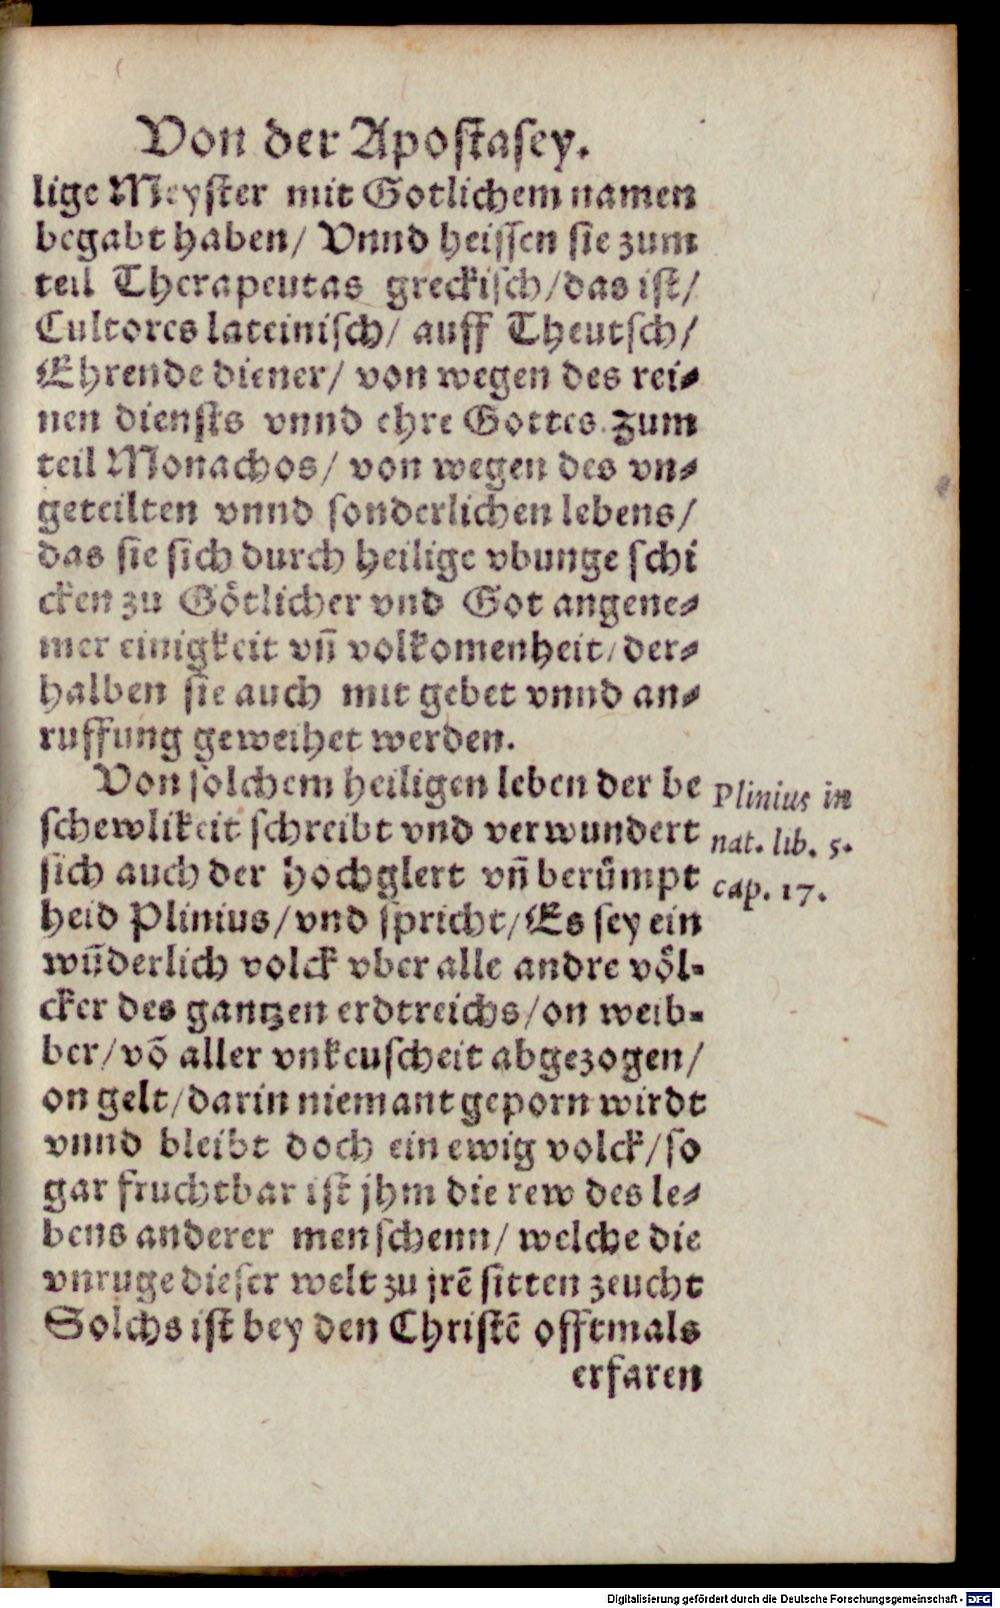 Von der Apostasey.
lige Meyster mit Gotlichem namen
begabt haben/ Vnnd heissen sie zum
teil Therapeutas greckisch/das ist/
Cultores lateinisch/ auff Theutsch/
Ehrende diener/ von wegen des rei⸗
nen diensts vnnd ehre Gottes. Zum
teil Monachos/ von wegen des vn⸗
geteilten vnnd sonderlichen lebens/
das sie sich durch heilige vbunge schi
cken zu Götlicher vnd Got angene⸗
mer einigkeit vñ volkomenheit/ der⸗
halben sie auch mit gebet vnnd an⸗
ruffung geweihet werden.
Von solchem heiligen leben der be
schewlikeit schreibt vnd verwundert
sich auch der hochglert vñ berůmpt
heid Plinius/vnd spricht/Es sey ein
wūderlich volck vber alle andre völ⸗
cker des gantzen erdtreichs/on weib⸗
ber/võ aller vnkeuscheit abgezogen/
on gelt/darin niemant geporn wirdt
vnnd bleibt doch ein ewig volck/so
gar fruchtbar ist jhm die rew des le⸗
bens anderer menschenn/ welche die
vnruge dieser welt zu jrē sitten zeucht
Solchs ist bey den Christē offtmals
erfaren
Plinius in
nat. lib. 5.
cap. 17.
Digitalisierung gefördert durch die Deutsche Forschungsgemeinschaft - DFG